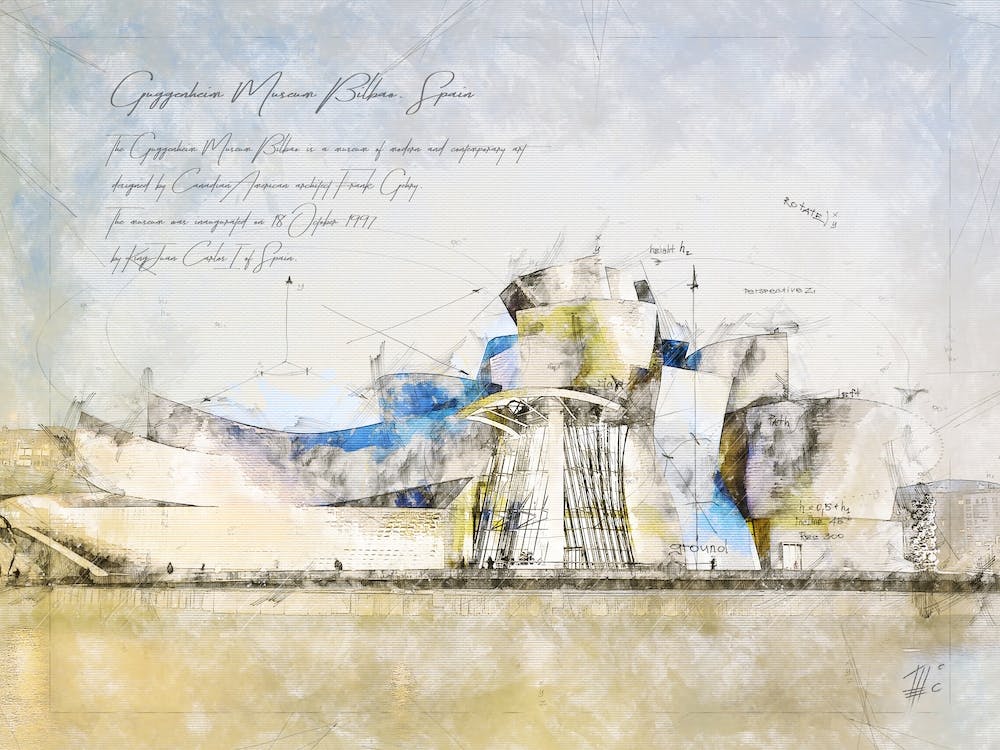 Guggenheim Museum Bilbao. Spain
The Guggenheim Museum Bilbao is a museum of modern and contemporary art
designed by Canadian American architect Frank Gehry.
The museum was inaugurated on 18 October 1997
by King Juan Carlos I of Spain.
ROTATE) x
y
y
height h2
y
perspective Z1
left
Path
h = 0,5 + h1
Incline 45°
Res 300
ground
c
c